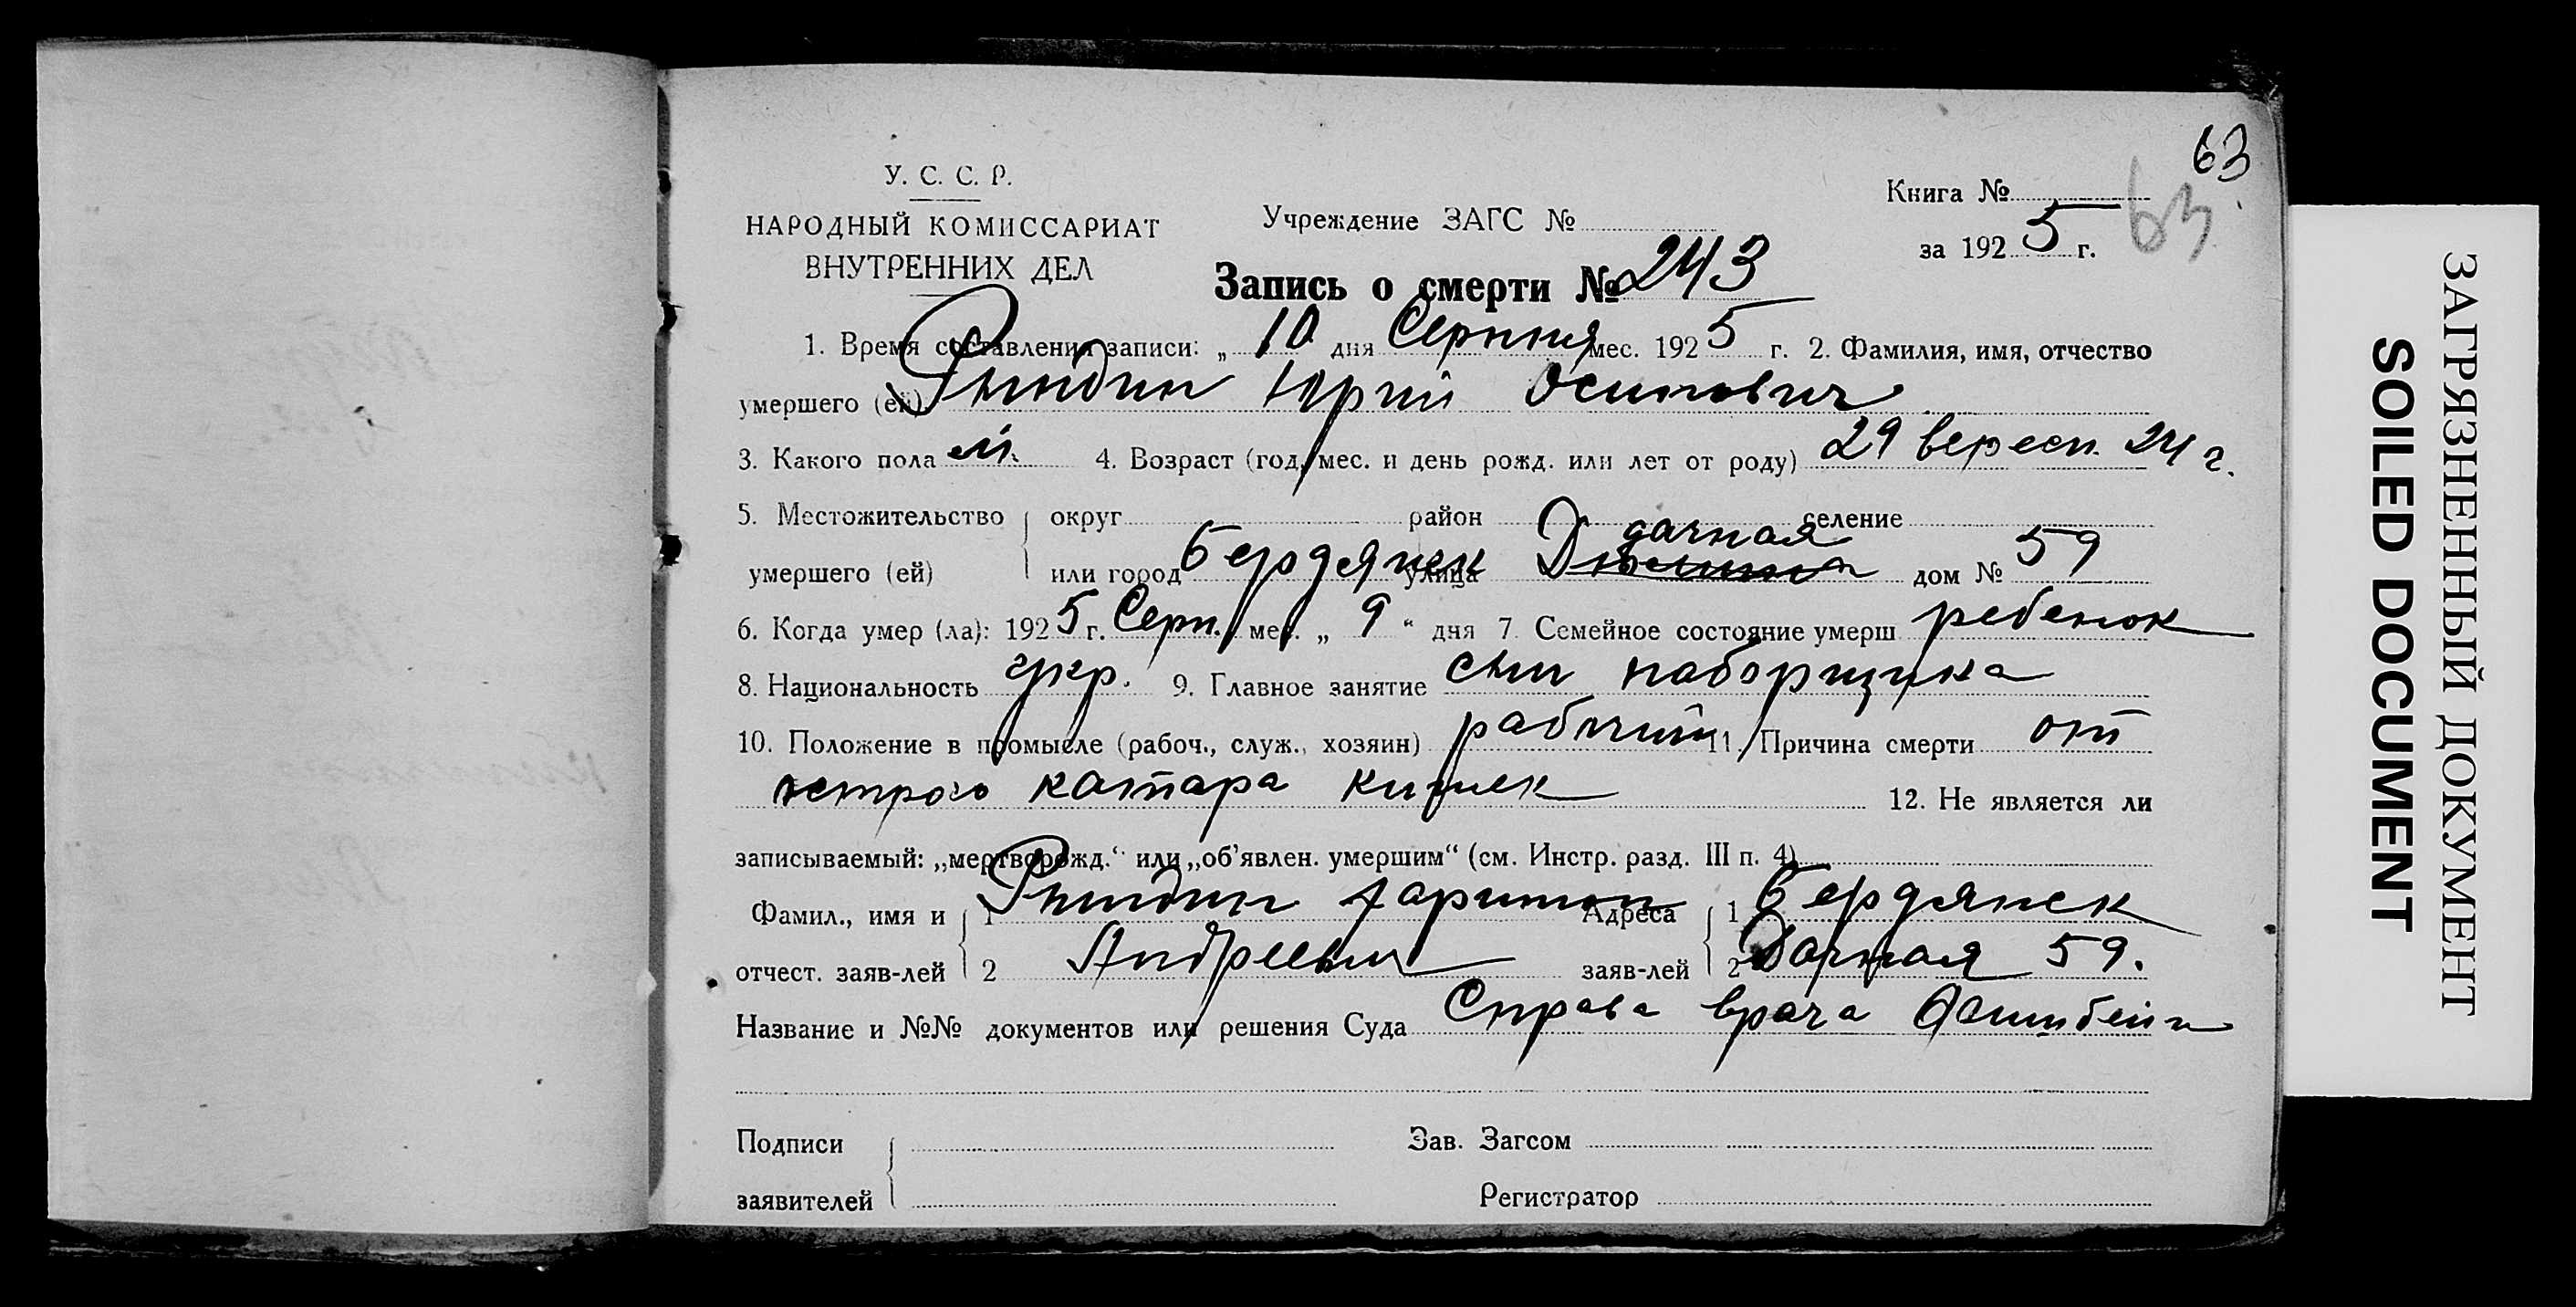 63
У. С. С. Р.
Книга № 63
НАРОДНЫЙ КОМИССАРИАТ
ВНУТРЕННИХ ДЕЛ
Учреждение ЗАГС №
за 1925 г.
Запись о смерти № 243
1. Время составления записи: „ 10 дня Серпня мес. 1925 г. 2. Фамилия, имя, отчество
умершего (ей) Юрий Осипович
3. Какого пола м. 4. Возраст (год, мес. и день рожд. или лет от роду) 29 вересн. 24 г.
5. Местожительство округ район селение
дачная
умершего (ей) или город Бердянск улица дом № 59
6. Когда умер (ла): 1925 г. Серп. мес. „ 9 “ дня 7 Семейное состояние умерш ребенок
8. Национальность укр. 9. Главное занятие сын наборщика
10. Положение в промысле (рабоч., служ., хозяин) рабочий 11. Причина смерти от
острого катара кишек 12. Не является ли
записываемый: „мертворожд.“ или „об’явлен. умершим“ (см. Инстр. разд. III п. 4)
Фамил., имя и 1 Харитон Адреса 1 Бердянск
отчест. заяв-лей 2 Андреевич заяв-лей 2 Дачная 59.
Название и №№ документов или решения Суда Справа врача
Подписи Зав. Загсом
заявителей Регистратор
ЗАГРЯЗНЕННЫЙ ДОКУМЕНТ
SOILED DOCUMENT